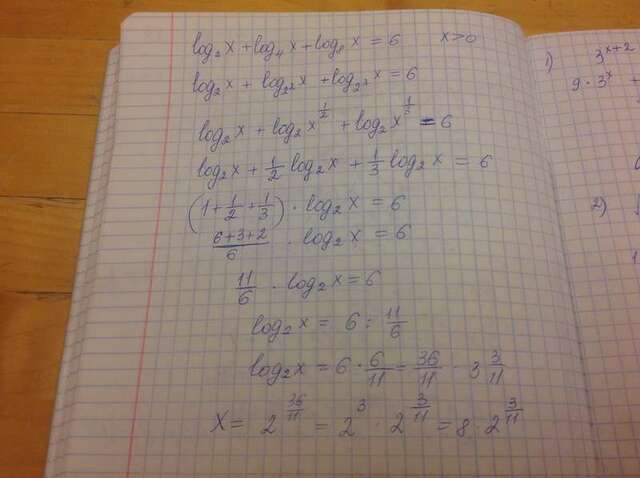 log₂x + log₄x + log₈x = 6    x>0
log₂x + log_{2²}x + log_{2³}x = 6
log₂x + log₂x^{1/2} + log₂x^{1/3} = 6
log₂x + 1/2 log₂x + 1/3 log₂x = 6
(1 + 1/2 + 1/3) · log₂x = 6
(6+3+2)/6 · log₂x = 6
11/6 · log₂x = 6
log₂x = 6 : 11/6
log₂x = 6 · 6/11 = 36/11 = 3 3/11
X = 2^{36/11} = 2³ · 2^{3/11} = 8 · 2^{3/11}
1) 3^{x+2}
9 · 3^x +
2)